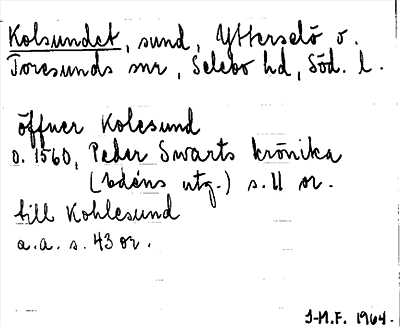 Kolsundet, sund, Ytterselö o.
Toresunds snr, Selebo hd, Söd. l.
öffuer Kolesund
o. 1560, Peder Swarts krönika
(Edéns utg.) s. 11 or.
till Kohlesund
a.a. s. 43 or.
J-M.F. 1964.